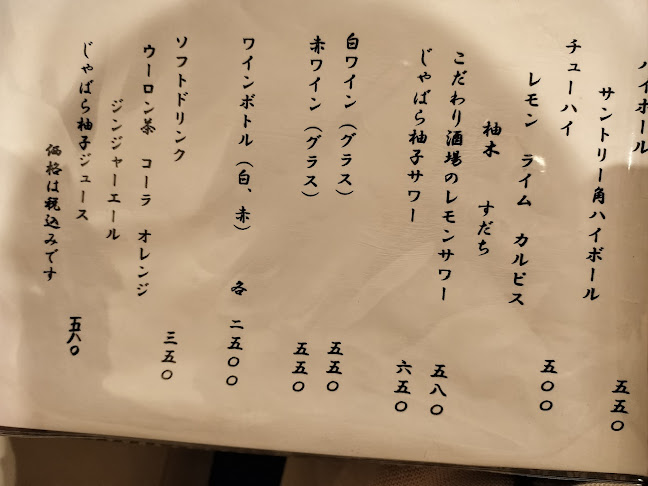 ハイボール
サントリー角ハイボール 五五〇
チューハイ 五〇〇
レモン ライム カルピス
柚木 すだち
こだわり酒場のレモンサワー 五八〇
じゃばら柚子サワー 六五〇
白ワイン（グラス） 五五〇
赤ワイン（グラス） 五五〇
ワインボトル（白、赤） 各 二五〇〇
ソフトドリンク 三五〇
ウーロン茶 コーラ オレンジ
ジンジャーエール
じゃばら柚子ジュース 五八〇
価格は税込みです